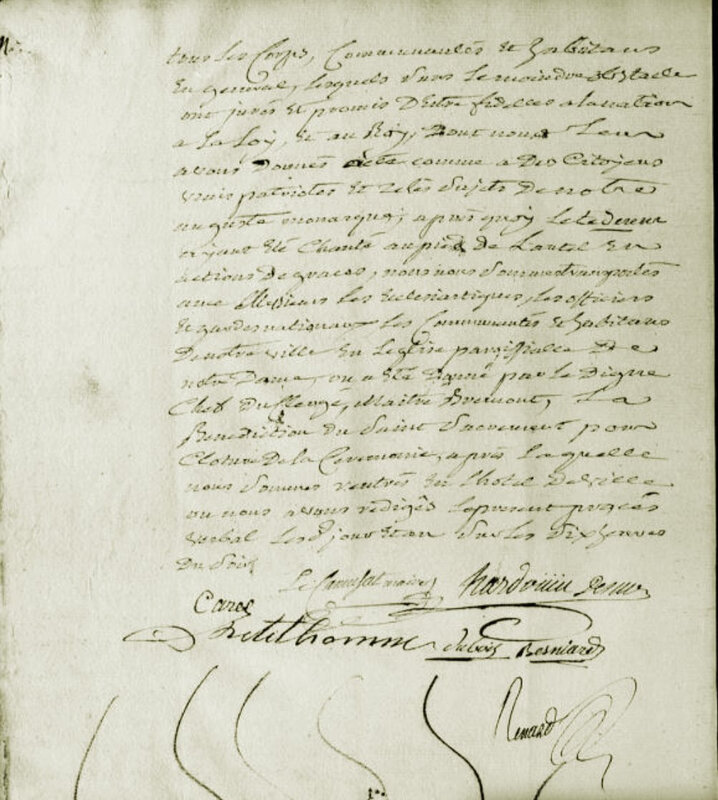 tous les Corps, Communautés et habitans
En general, lesquels sans le moindre obstacle
ont jurés et promis D'Etre fideles a la nation
a La Loy, et au Roy, Dont nous Leur
avons Donnés acte comme a Des Citoyens
vrais patriotes et zelés Sujets De notre
auguste monarque; après quoy le te deum
ayant été Chanté au pied de Lautel En
actions de graces, nous nous sommes transportés
avec Messieurs les Eclesiastiques, les officiers
et gardes nationaux les Communautés et habitans
De notre ville En Leglise paroissialle De
notre Dame, ou a été Donné par le Digne
Chef Du Clergé, Maitre Bremont, La
Benediction du Saint Sacrement pour
Cloture De la Ceremonie, après laquelle
nous sommes rentrés En l'hotel De ville
ou nous avons redigés le present procés
verbal les d. jour et an sur les Dix heures
Du Soir
Le Camusat maire hardouin
Caros
Petithomme dubois Besniard
Renard